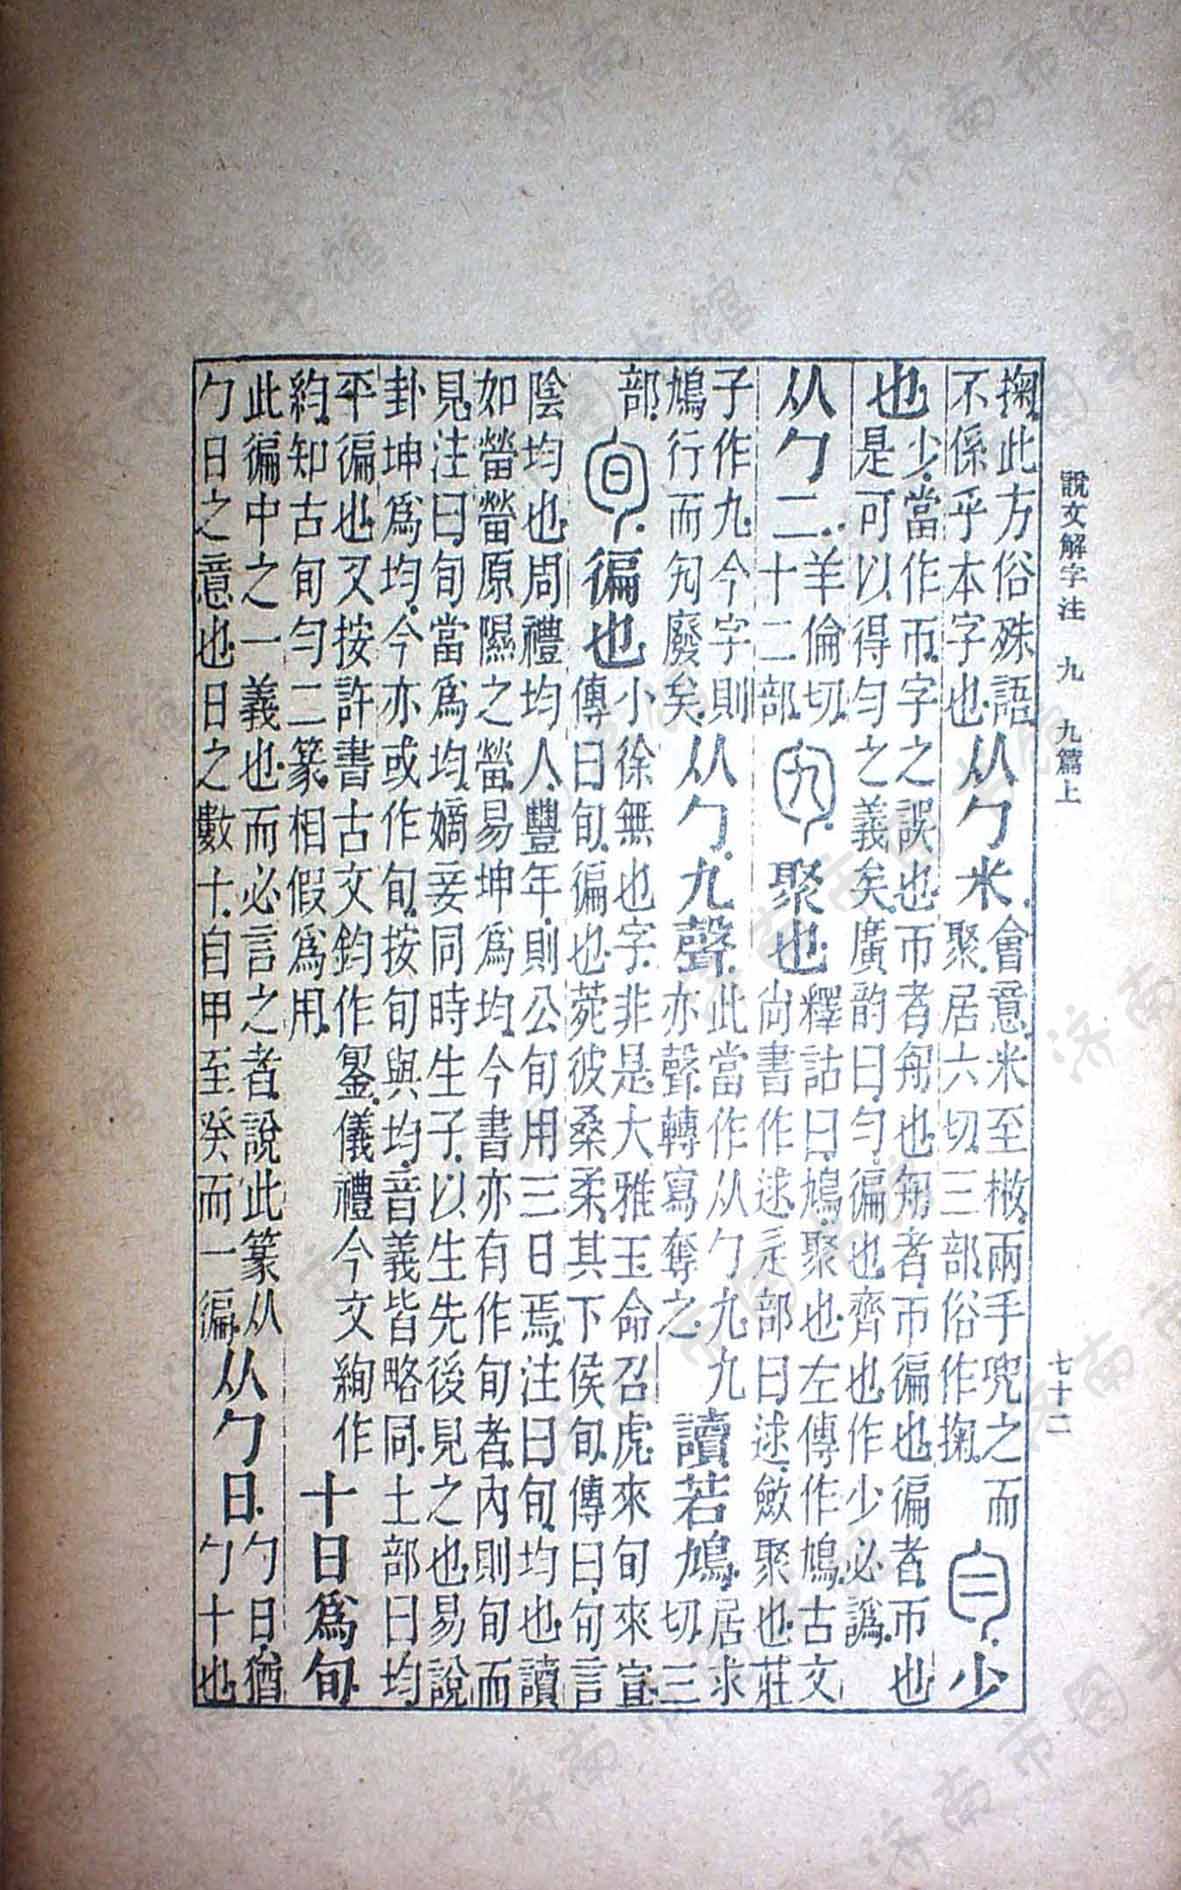 掬此方俗殊語
不係乎本字也
从勹米
會意米至㪔兩手兜之而
聚居六切三部俗作掬
勻少
也
少當作帀字之誤也帀者匊也匊者帀徧也徧者帀也
是可以得勻之義矣廣韵曰勻徧也齊也作少必譌
从勹二
羊倫切
十二部
勼聚也
釋詁曰鳩聚也左傳作鳩古文
尚書作逑辵部曰逑斂聚也莊
子作九今字則
鳩行而勼廢矣
从勹九聲
此當作从勹九九
亦聲轉寫奪之
讀若鳩
居求
切三
部
旬徧也
小徐無也字非是大雅玉命召虎來旬來宣
傳曰旬徧也菀彼桑柔其下侯旬傳曰旬言
陰均也周禮均人豐年則公旬用三日焉注曰旬均也讀
如㽦㽦原隰之㽦易坤爲均今書亦有作旬者內則旬而
見注曰旬當爲均嫡妾同時生子以生先後見之也易說
卦坤爲均今亦或作旬按旬與均音義皆略同土部曰均
平徧也又按許書古文鈞作銞儀禮今文絇作
約知古旬勻二篆相假爲用
十日爲旬
此徧中之一義也而必言之者說此篆从
勹日之意也日之數十自甲至癸而一徧
从勹日
勹日猶
勹十也
說文解字注 九 九篇上
七十二
济南市图书馆